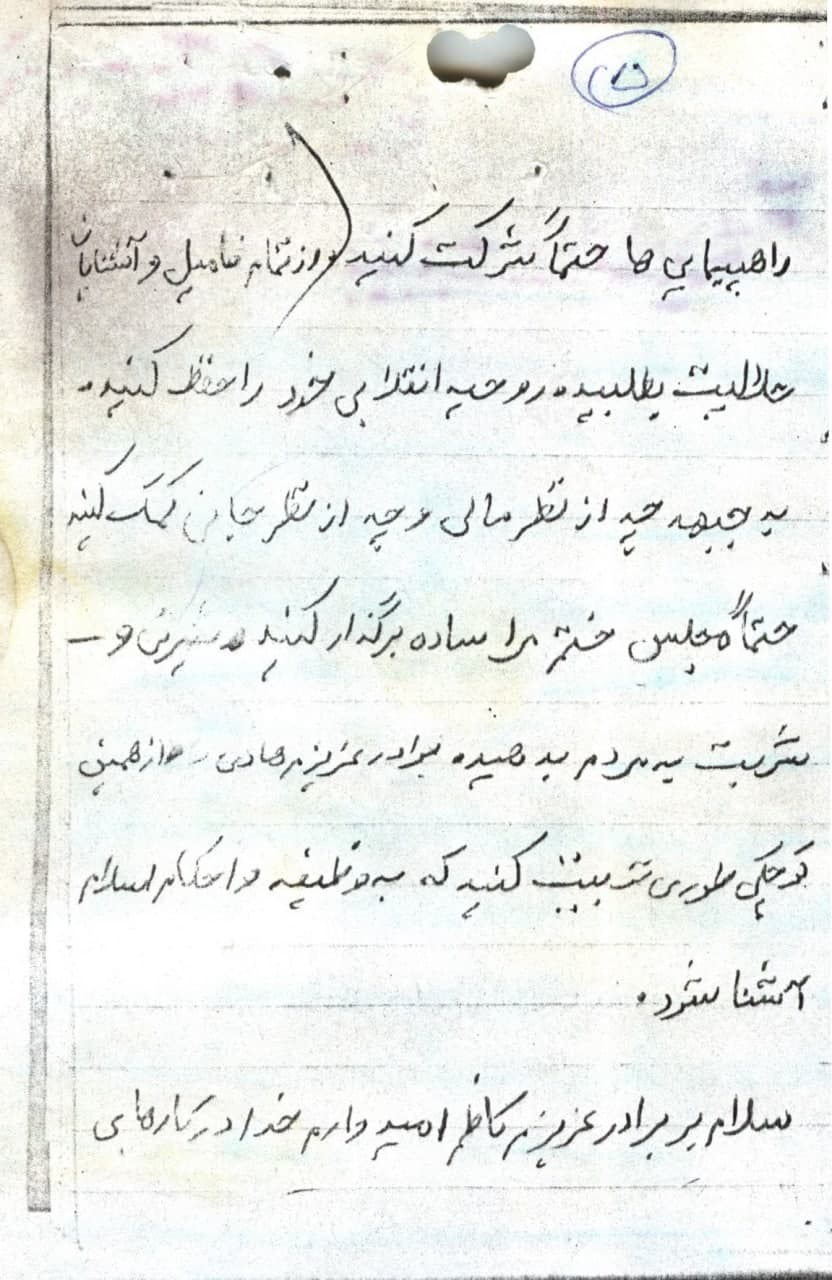 راهپیمایی ها حتماً شرکت کنید و از تمام فامیل و آشنایان
حلالیت بطلبید. روحیه انقلابی خود را حفظ کنید.
به جبهه چه از نظر مالی و چه از نظر جانی کمک کنید
حتماً مجلس ختم مرا ساده برگذار کنید و شیرینی و
شربت به مردم بدهید. برادر عزیزم هادی را از همین
کوچکی طوری تربیت کنید که به وظیفه و احکام اسلام
آشنا شود.
سلام بر برادر عزیزم کاظم امیدوارم خدا در کارهایی